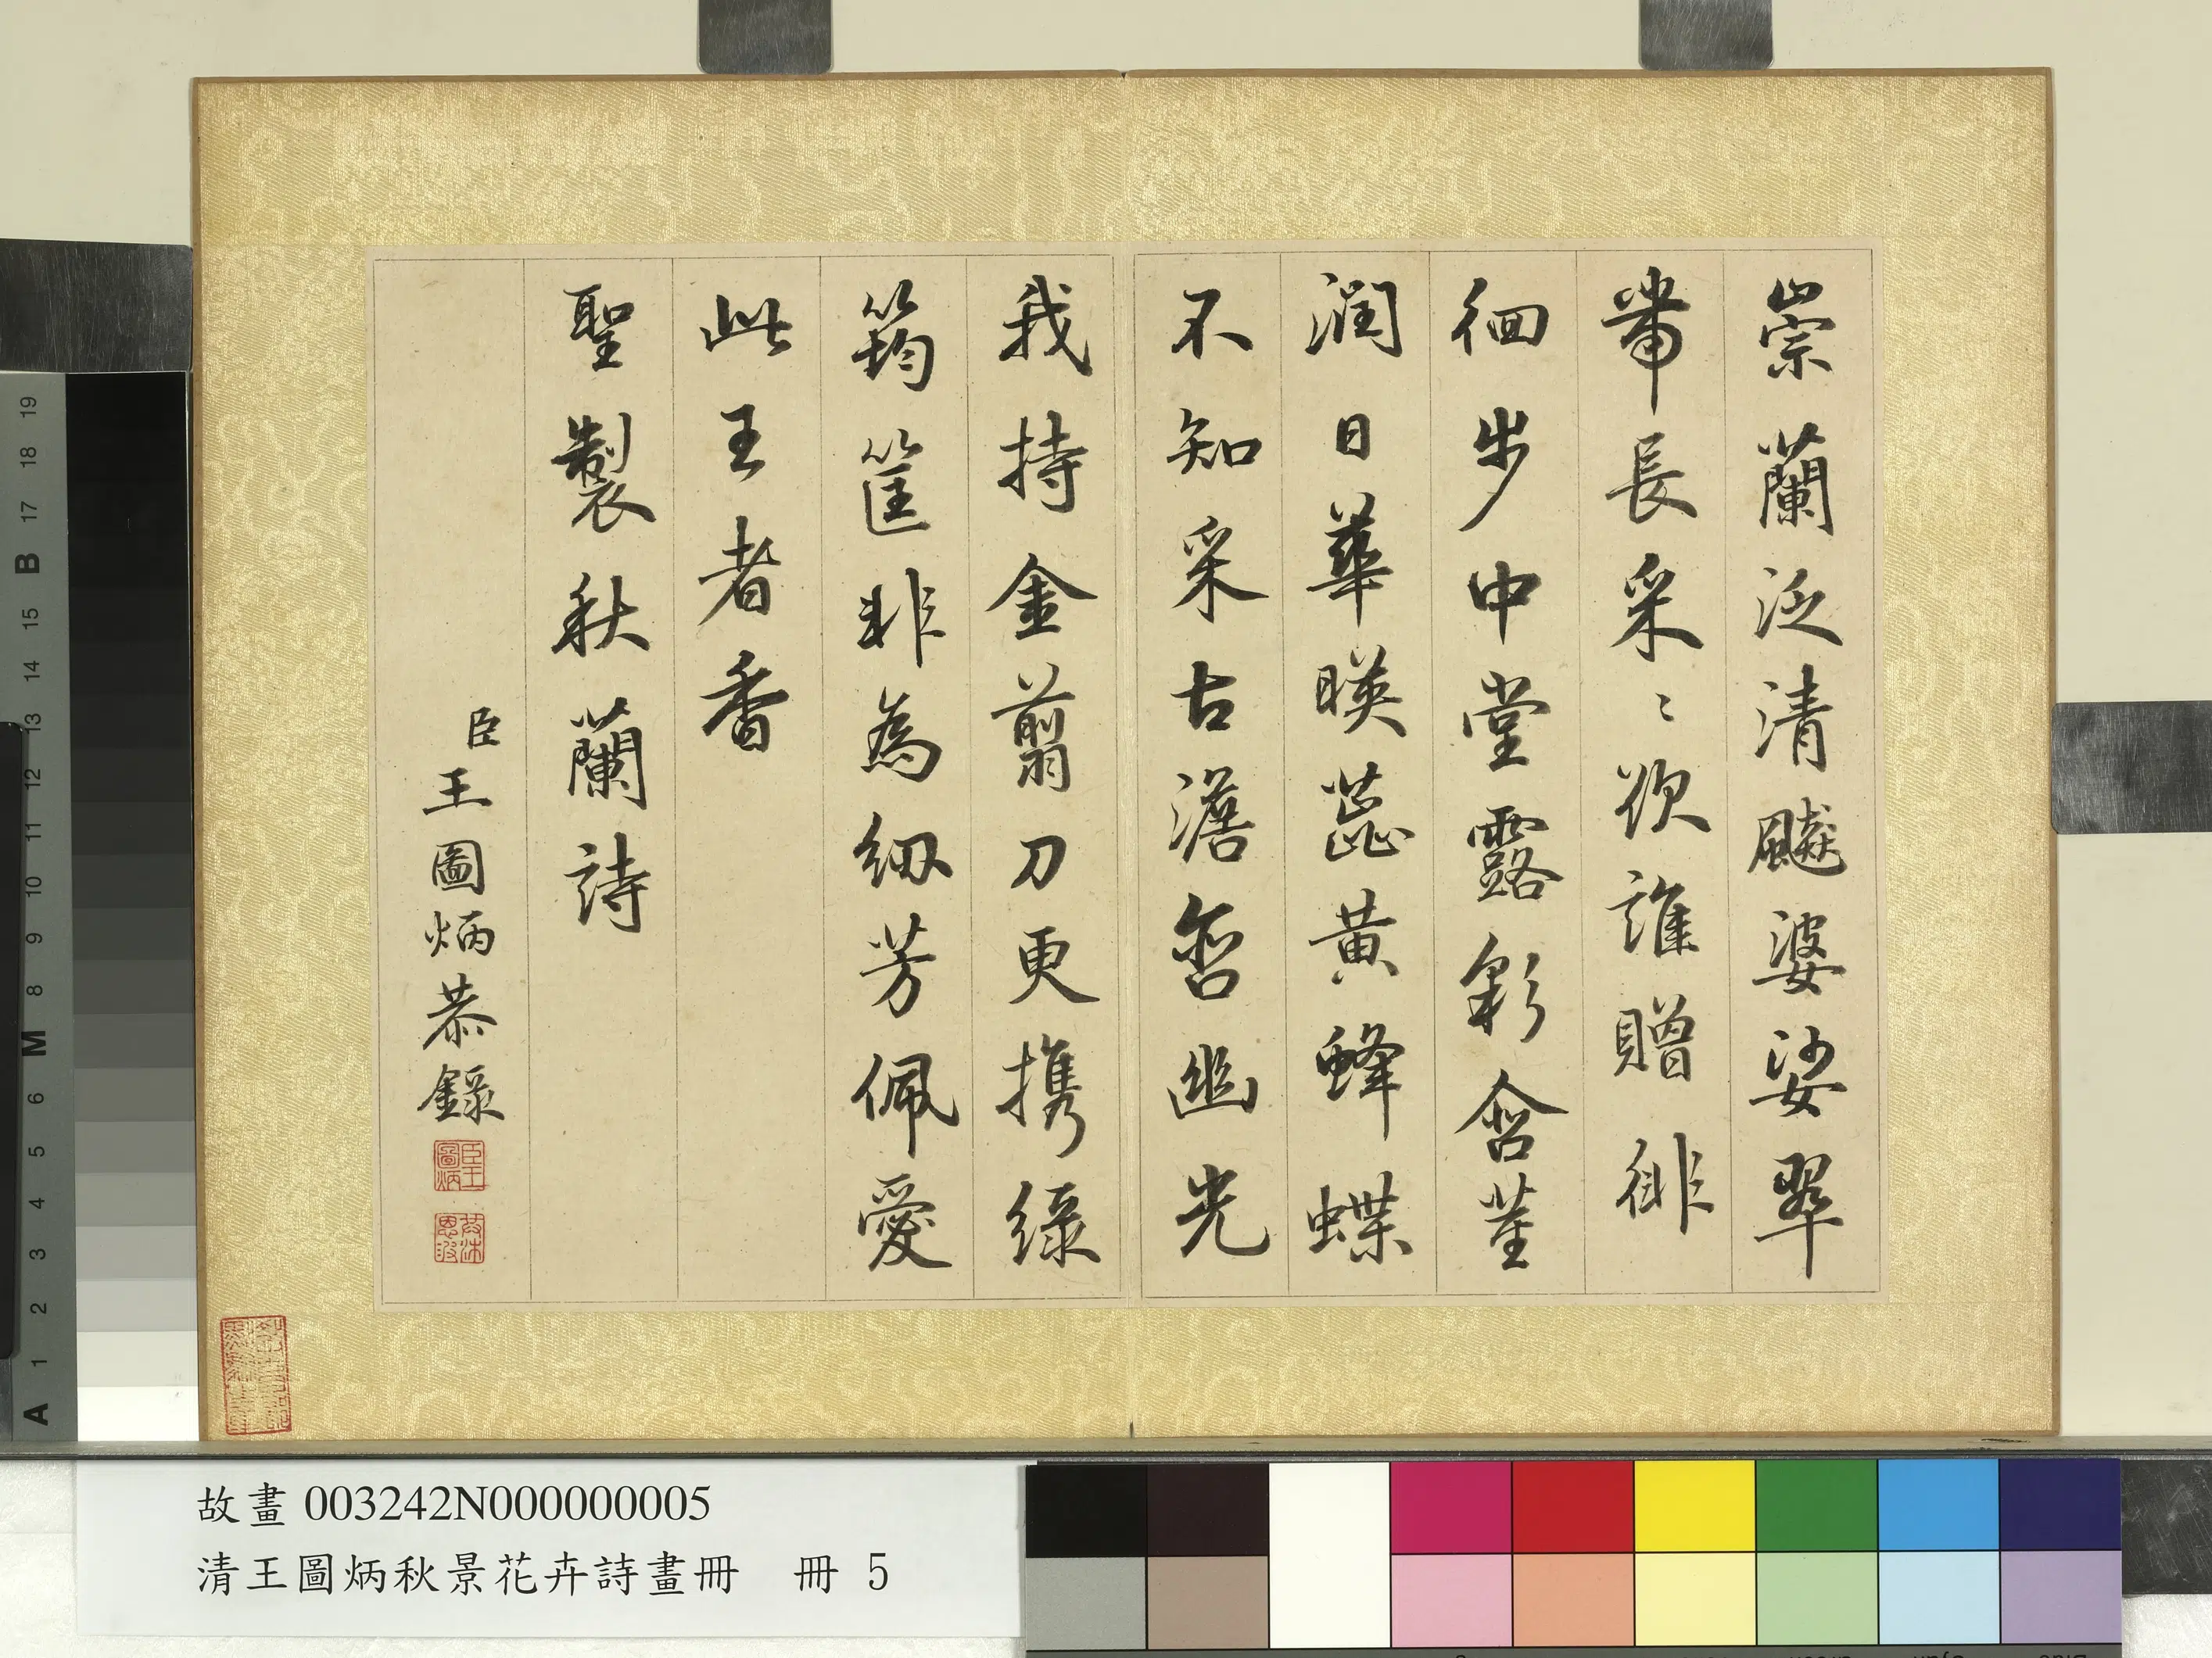 崇蘭泛清飈婆娑翠
帶長采〻欲誰贈徘
徊步中堂露彩含莖
潤日華暎蕊黄蜂蝶
不知采古澹啓幽光
我持金翦刀更携綠
筠筐非為紉芳佩愛
此王者香
聖製秋蘭詩
臣王圖炳恭錄
臣王圖炳
故畫 003242N000000005
清王圖炳秋景花卉詩畫冊 冊 5
A 1 2 3 4 5 6 M 8 9 10 11 12 13 14 15 B 17 18 19